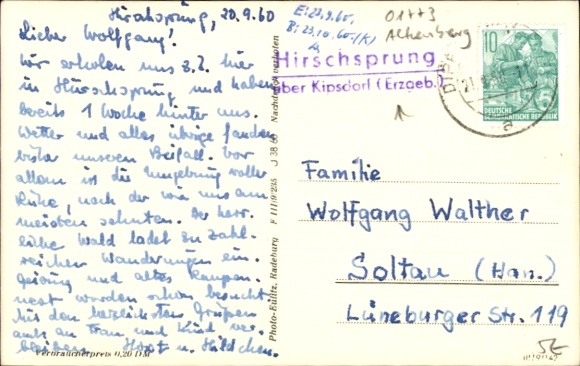 Hirschsprung, 20.9.60
Lieber Wolfgang!
Wir erholen uns z.Z. hier
in Hirschsprung und haben
bereits 1 Woche hinter uns.
Wetter und alles übrige fanden
bisher unseren Beifall. Vor
allem ist die Umgebung voller
Ruhe, nach der wir uns am
meisten sehnten. Der herr-
liche Wald ladet zu zahl-
reichen Wanderungen ein.
Geising und altes Raupen-
nest wurden schon besucht.
Mit den herzlichsten Grüßen
auch an Frau und Kind ver-
bleiben Horst u. Hildchen.
Verbraucherpreis 0,20 DM
Photo-Eulitz, Radeburg F III/9/235 J 38 60 Nachdruck verboten
E: 23.9.60.
B: 23.10.60. (K)
01773
Altenberg
Hirschsprung
über Kipsdorf (Erzgeb.)
10
DEUTSCHE
DEMOKRATISCHE REPUBLIK
Familie
Wolfgang Walther
Soltau (Han.)
Lüneburger Str. 119
5E